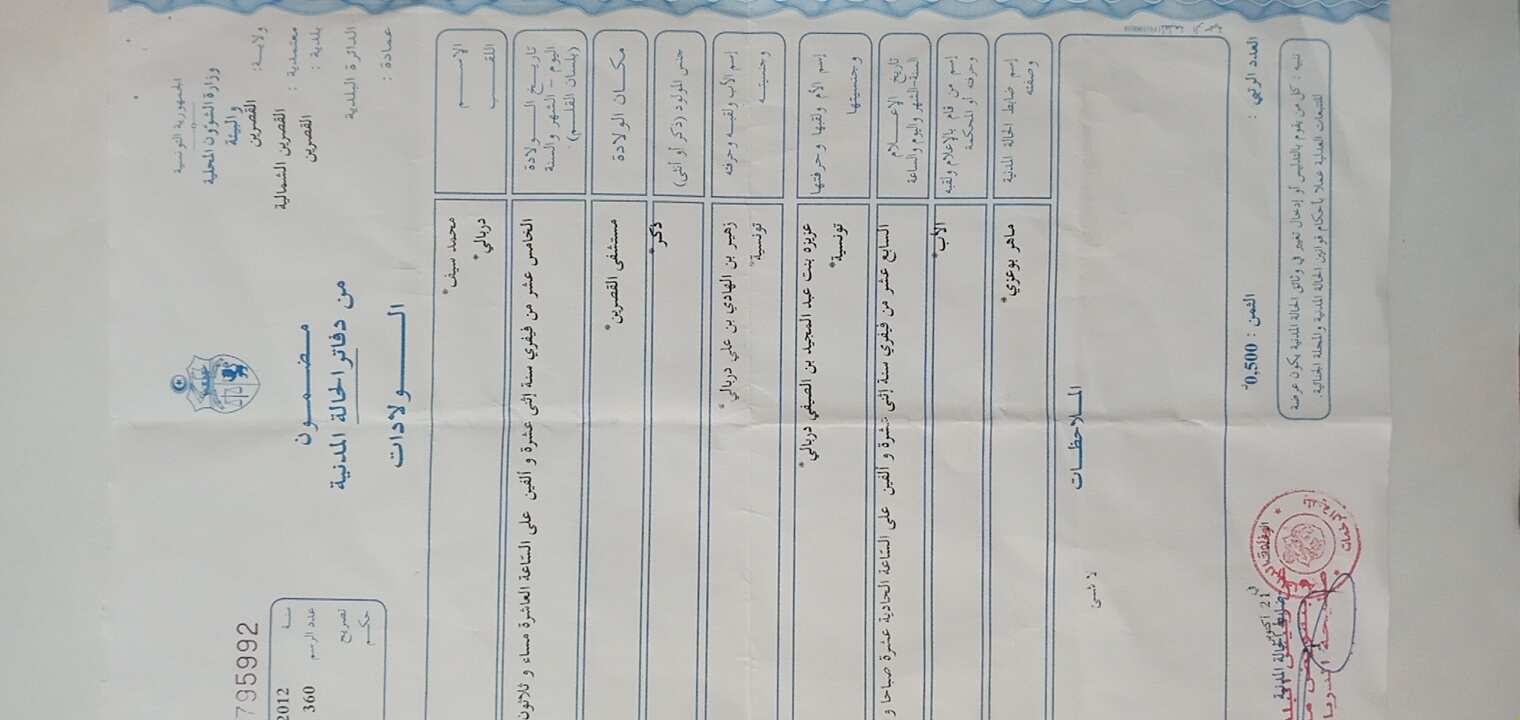 الجمهورية التونسية
وزارة الشؤون المحلية
والبيئة
ولاية: القصرين
معتمدية : القصرين الشمالية
بلدية : القصرين
الدائرة البلدية
عمادة :
795992
مضمون
من دفاتر الحالة المدنية
الولادات
سنة 2012
عدد الرسم 360
تصريح
حكم
الإسم محمد سيف*
اللقب دربالي*
تاريخ الولادة
اليوم - الشهر والسنة
(بلسان القلم)
الخامس عشر من فيفري سنة إثنى عشرة و ألفين على الساعة العاشرة مساء و ثلاثون
مكان الولادة مستشفى القصرين*
جنس المولود (ذكر أو أنثى) ذكر*
إسم الأب ولقبه وحرفته زهير بن الهادي بن علي دربالي*
وجنسيته تونسية*
إسم الأم ولقبها وحرفتها عزيزه بنت عبد المجيد بن الصيفي دربالي*
وجنسيتها تونسية*
تاريخ الإعلام
السنة-الشهر واليوم والساعة
السابع عشر من فيفري سنة إثنى عشرة و ألفين على الساعة الحادية عشرة صباحا و
إسم من قام بالإعلام ولقبه
وحرفته أو المحكمة
الأب*
إسم ضابط الحالة المدنية
وصفته
ماهر بوعزي*
الملاحظات
لا شئ
العدد الرتبي :
الثمن : 0,500د
في 21 أكتوبر
ضابط الحالة المدنية
تنبيه : كل من يقوم بالتدليس أو إدخال تغيير في وثائق الحالة المدنية يكون عرضة
للتتبعات العدلية عملا بأحكام قوانين الحالة المدنية والمجلة الجنائية.